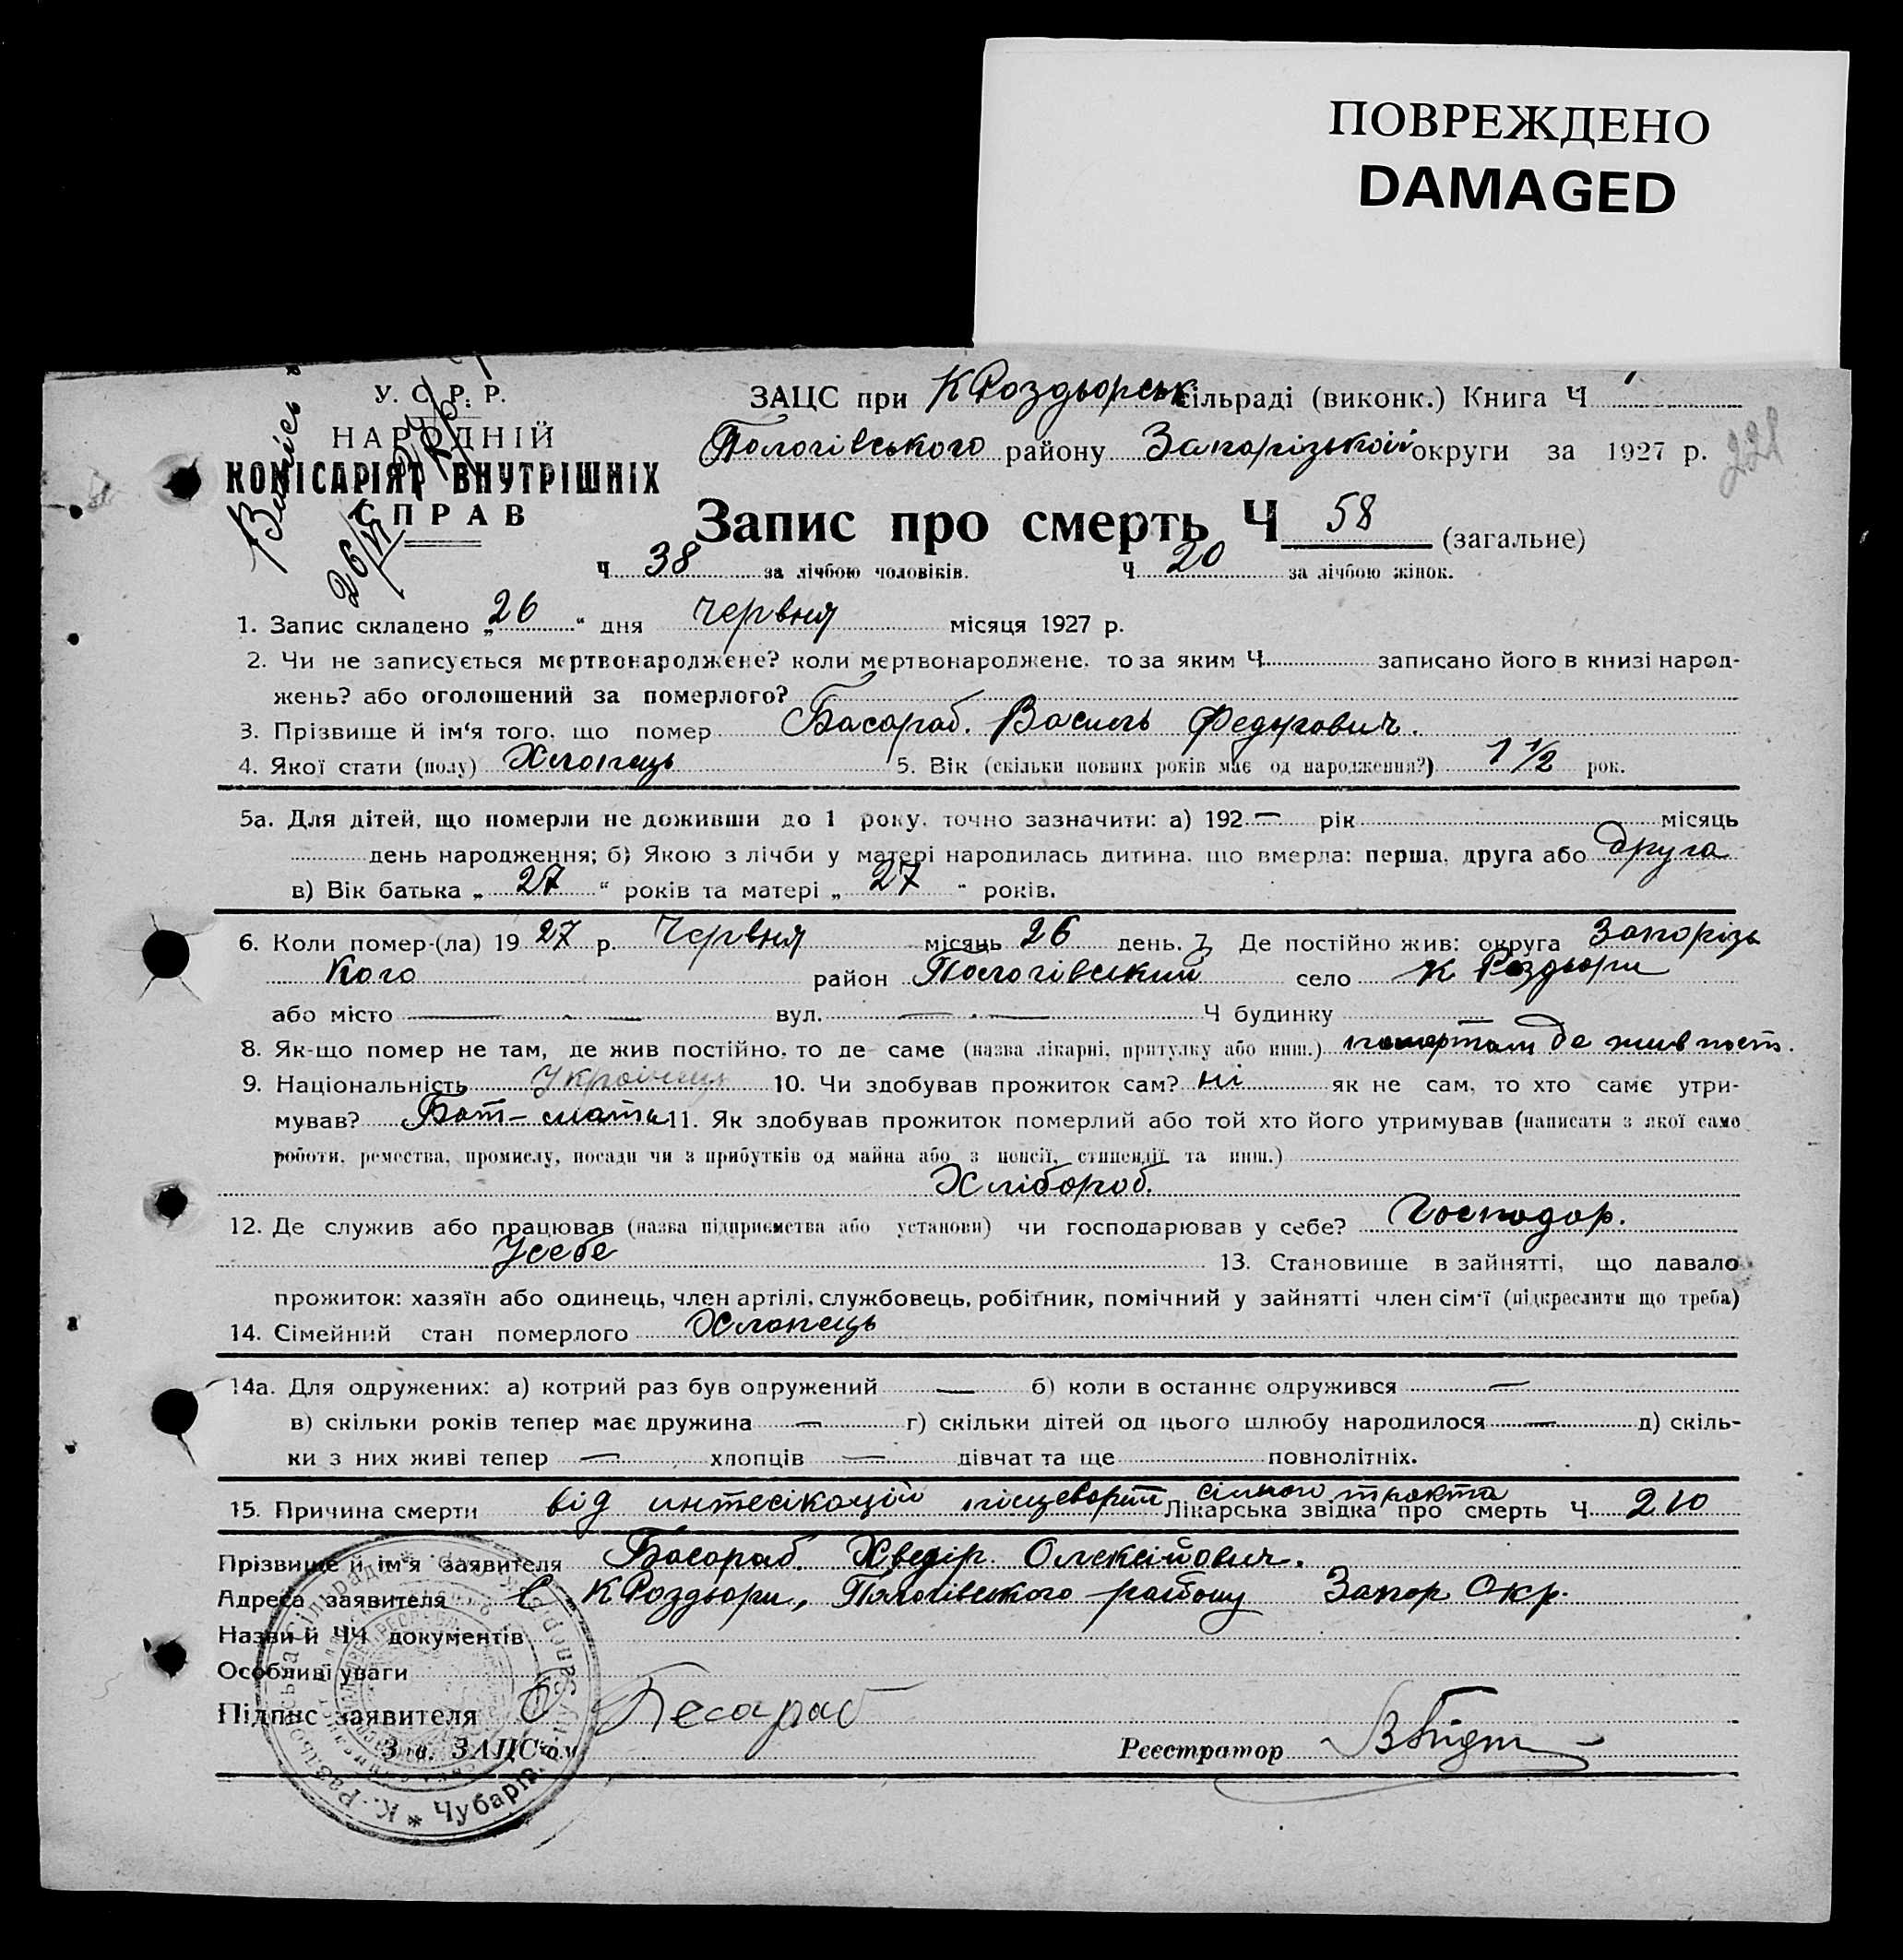 ПОВРЕЖДЕНО
DAMAGED
У. С. Р. Р.
НАРОДНІЙ
КОМІСАРІЯТ ВНУТРІШНІХ
СПРАВ
26/VI
ЗАЦС при К Роздьорськ сільраді (виконк.) Книга Ч 1
Пологівського району Запорізької округи за 1927 р.
Запис про смерть Ч 58 (загальне)
Ч 38 за лічбою чоловіків. Ч 20 за лічбою жінок.
1. Запис складено „26“ дня червня місяця 1927 р.
2. Чи не записується мертвонароджене? коли мертвонароджене, то за яким Ч записано його в книзі народ-
жень? або оголошений за померлого?
3. Прізвище й ім'я того, що помер Басараб. Василь Федорович.
4. Якої стати (полу) Хлопець 5. Вік (скільки повних років має од народження?) 1 1/2 рок.
5а. Для дітей, що померли не доживши до 1 року, точно зазначити: а) 192 — рік місяць
день народження; б) Якою з лічби у матері народилась дитина, що вмерла: перша, друга або друга
в) Вік батька „27“ років та матері „27“ років.
6. Коли помер-(ла) 1927 р. Червня місяць 26 день. 7. Де постійно жив: округа Запорізь
кого район Пологівський село К Роздьори
або місто — вул. — Ч будинку
8. Як-що помер не там, де жив постійно, то де саме (назва лікарні, притулку або инш.) помер там де жив пост.
9. Національність Українець 10. Чи здобував прожиток сам? ні як не сам, то хто саме утри-
мував? Бат-мати 11. Як здобував прожиток померлий або той хто його утримував (написати з якої само
роботи, ремества, промислу, посади чи з прибутків од майна або з пенсії, стипендії та инш.)
Хлібороб.
12. Де служив або працював (назва підприємства або установи) чи господарював у себе? Господар.
Усебе 13. Становище в зайнятті, що давало
прожиток: хазяїн або одинець, член артілі, службовець, робітник, помічний у зайнятті член сім'ї (підкреслити що треба)
14. Сімейний стан померлого Хлопець
14а. Для одружених: а) котрий раз був одружений — б) коли в останнє одружився —
в) скільки років тепер має дружина — г) скільки дітей од цього шлюбу народилося — д) скіль-
ки з них живі тепер — хлопців — дівчат та ще повнолітніх.
15. Причина смерти від Лікарська звідка про смерть Ч 210
Прізвище й ім'я заявителя Басараб. Хведір Олексійович.
Адреса заявителя С К Роздьори, Пологівського району Запор Окр.
Назви й ЧЧ документів
Особливі уваги
Підпис заявителя Бесараб
Зав. ЗАЦС'ом Реєстратор
* Чубарів.